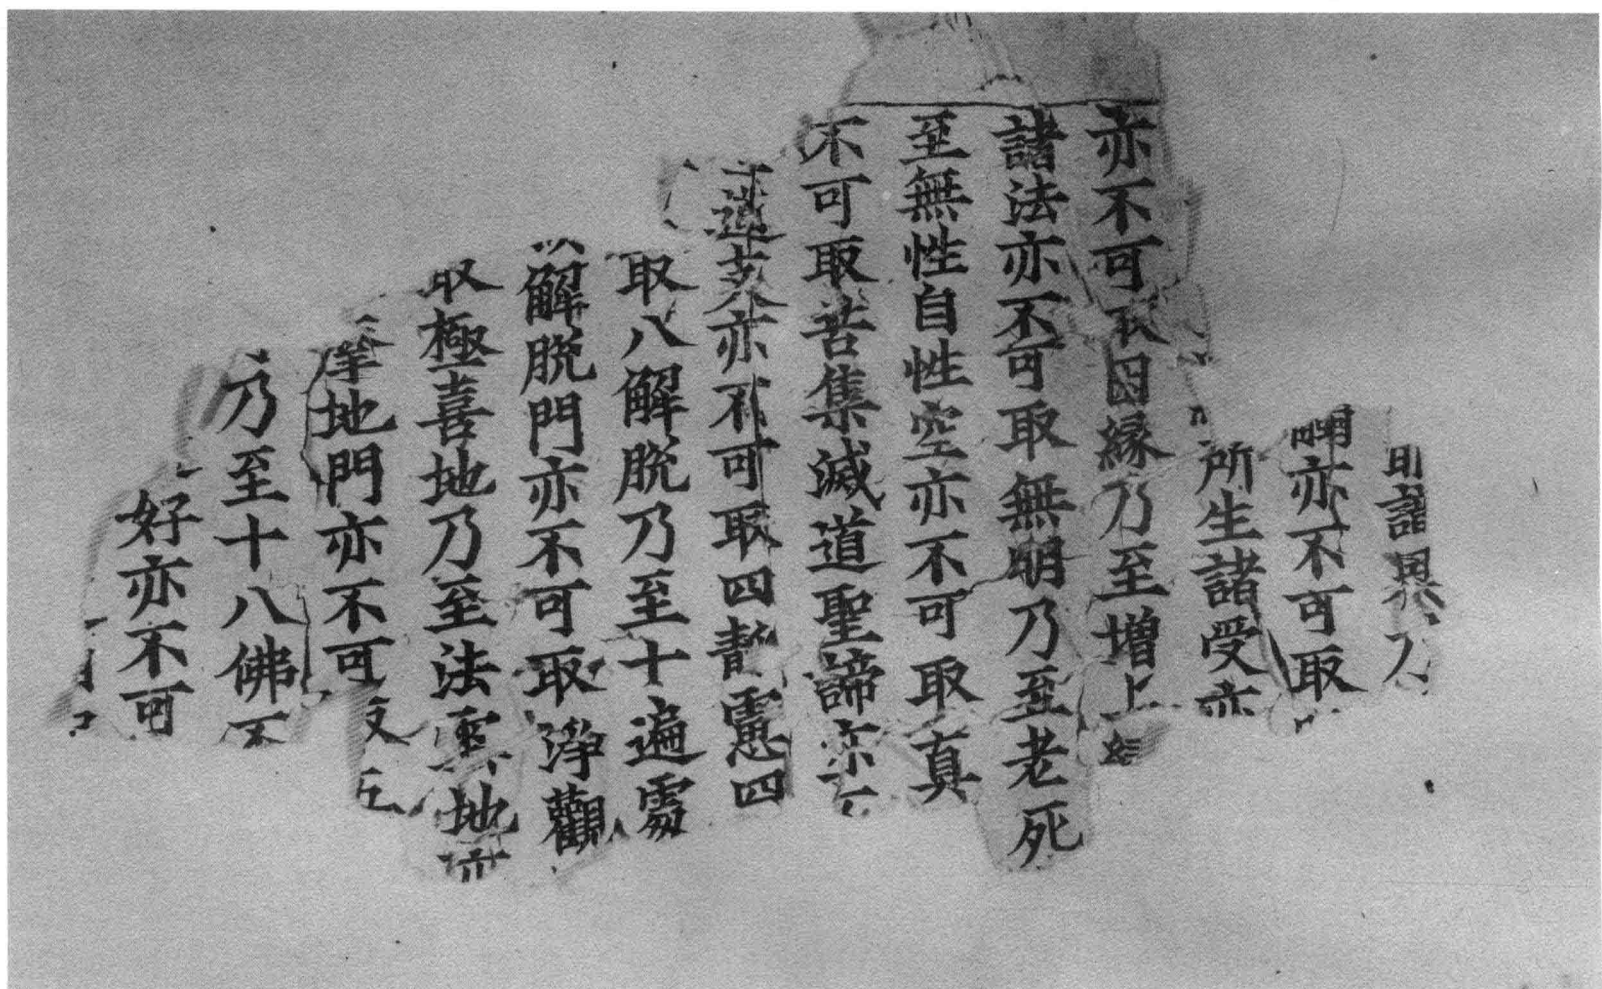 諸界乃
亦不可取
所生諸受亦
亦不可取因緣乃至增上緣
諸法亦不可取無明乃至老死
至無性自性空亦不可取真
不可取苦集滅道聖諦亦不
道支亦不可取四靜慮四
取八解脫乃至十遍處
解脫門亦不可取淨觀
取極喜地乃至法雲地亦
摩地門亦不可取五
乃至十八佛不
好亦不可